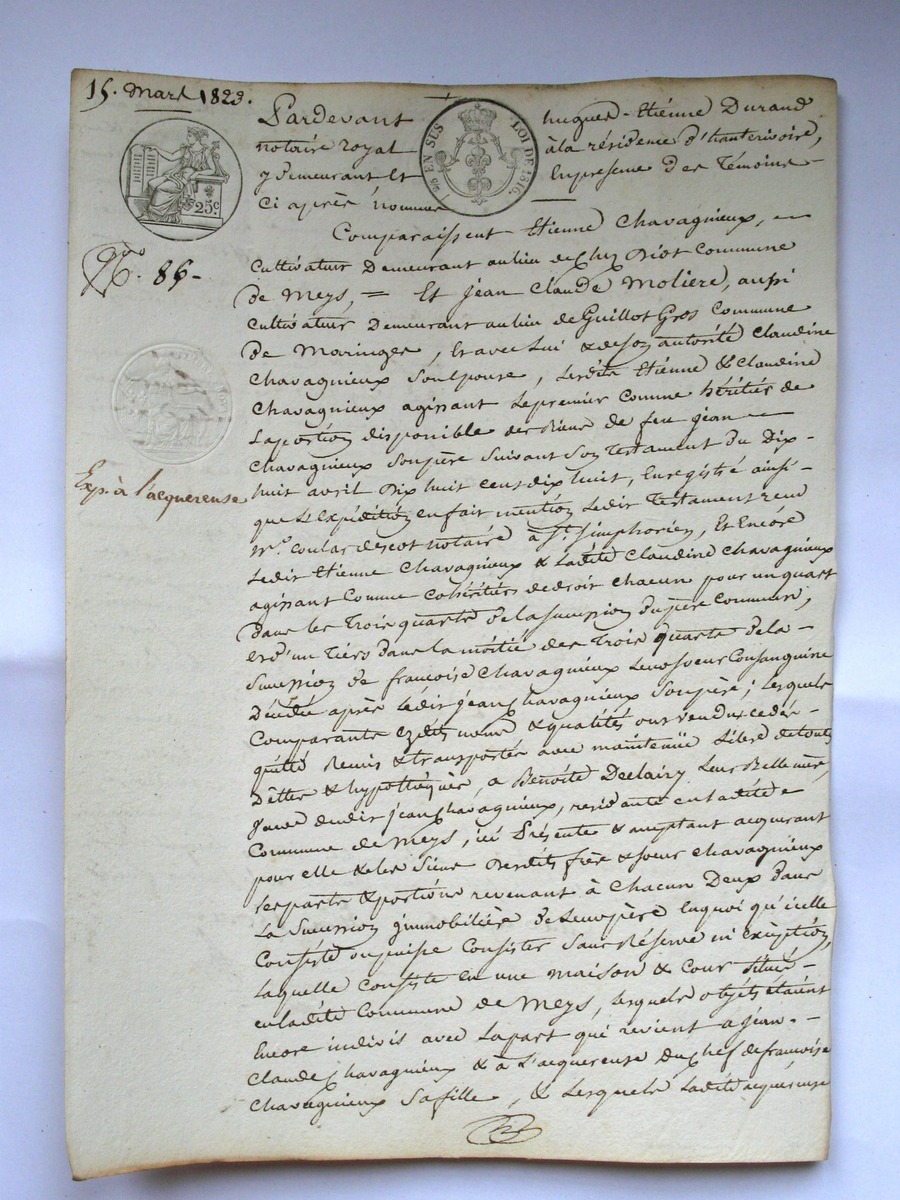 15. Mars 1823.
Pardevant hugues-Etiénne Durand
notaire royal à la résidence d'hauterivoire,
y demeurant Et En présence des Témoins
Ci après nommés
25 EN SUS LOI DE 1816.
25c.
N.º 86-
Exp. à l'acquereuse
Comparaissent Etienne Chavagnieux,
Cultivateur Demeurant au lieu de chez Biot Commune
de Meys, = Et Jean Claude Moliere, aussi
Cultivateur Demeurant au lieu de Guillot Gros Commune
de Maringes, Et avec Lui & de son autorité Claudine
Chavagnieux Son Epouse, Lesdits Etienne & Claudine
Chavagnieux agissant Le premier Comme héritier de
La portion disponible des Biens de feu jean
Chavagnieux Son père Suivant Son Testament du Dix-
huit avril Dix huit cent dix huit, Enregistré ainsi
que L'Expédition en fait mention Ledit Testament reçu
Mº. Coular descot notaire à St. Simphorien, Et Encore
Ledit Etienne Chavagnieux & Ladite Claudine Chavagnieux
agissant Comme cohéritiers de droit chacun pour un quart
dans les Trois quarts de la succession du père Commun,
et d'un Tiers dans la moitié des Trois quarts de la
Succession de francoise Chavagnieux Leur Soeur Consanguine
Décédée après Ledit jean Chavagnieux Son père; Lesquels
Comparants Esdits noms & qualités ont vendu, cédé
quitté Remis & transporté avec maintenüe Libre de toutes
dettes & hypothèques, a Benoite Declairy Leur Belle mère,
veuve dudit jean Chavagnieux, residante en Ladite
Commune de Meys, ici Présente & acceptant acquérant
pour elle & les Siens Desdits frère & soeur Chavagnieux
Les parts & portions revenant à Chacun Deux Dans
La Succession jmmobilière de Leur père En quoi qu'icelle
Consiste ou puisse Consister Sans Réserve ni Exception,
Laquelle Consiste en une maison & Cour Située
en Ladite Commune de Meys, Lesquels objets étaient
Encore indivis avec La part qui revient a jean
Claude Chavagnieux & à L'acquereuse du Chef de francoise
Chavagnieux Sa fille, & Lesquels Ladite acquéreuse